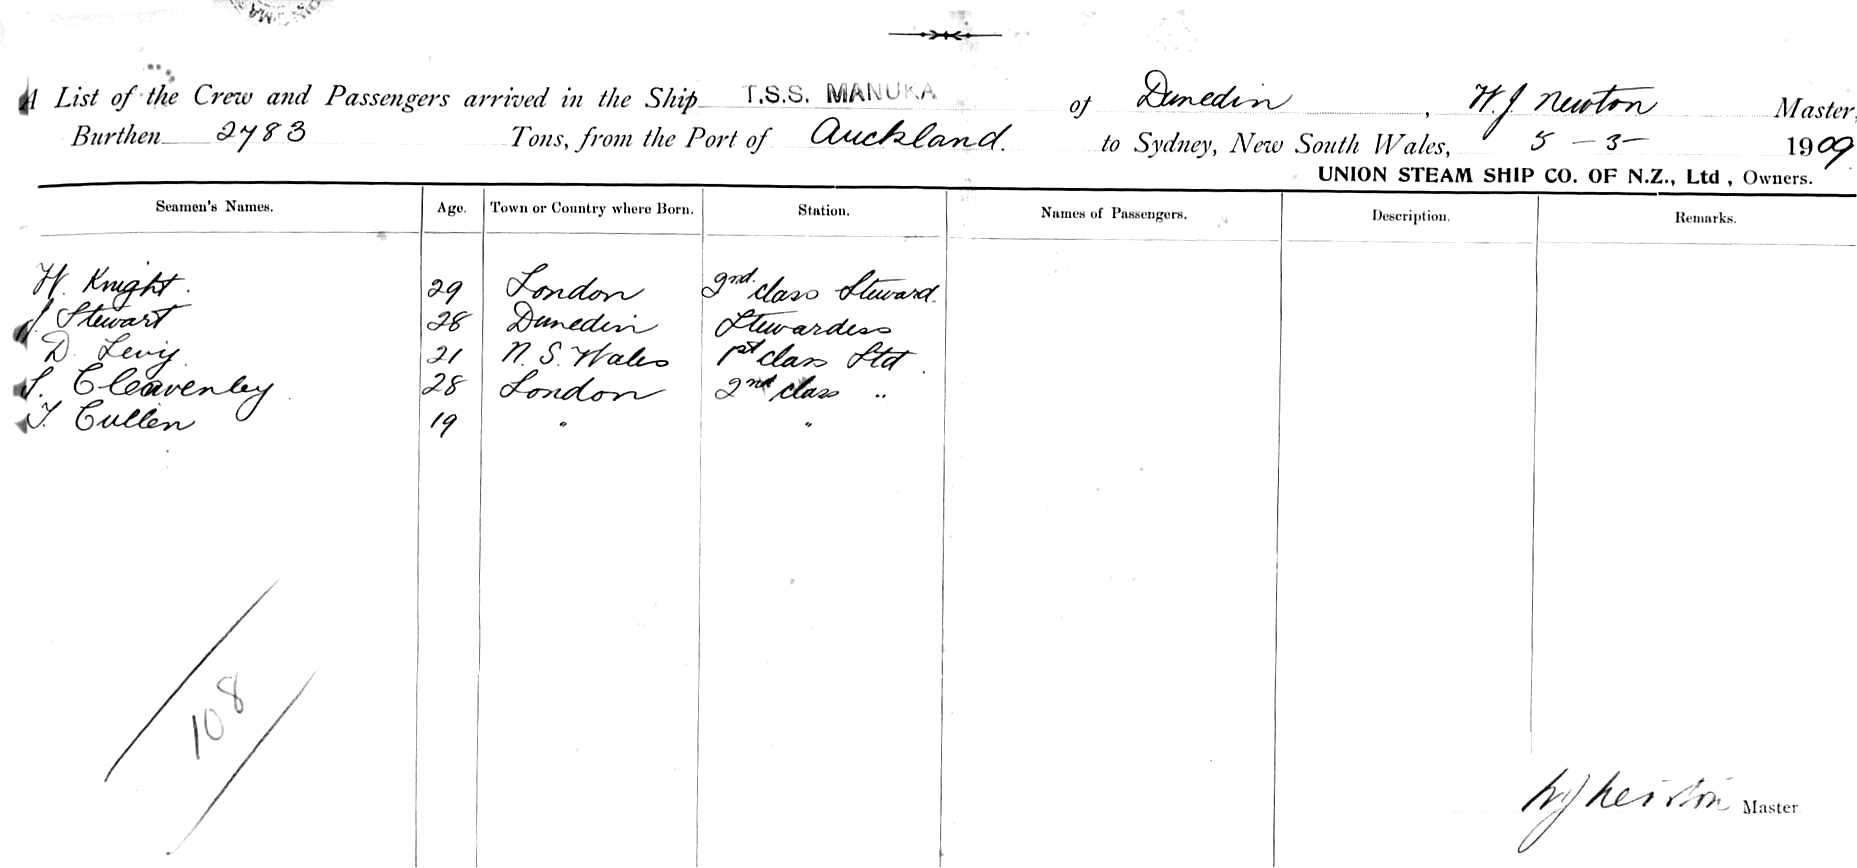 A List of the Crew and Passengers arrived in the Ship T.S.S. MANUKA of Dunedin, W. J. Newton Master,
Burthen 2783 Tons, from the Port of Auckland. to Sydney, New South Wales, 5 - 3 - 1909
UNION STEAM SHIP CO. OF N.Z., Ltd, Owners.
Seamen's Names. Age. Town or Country where Born. Station. Names of Passengers. Description. Remarks.
W. Knight. 29 London 2nd. class Steward.
J. Stewart 28 Dunedin Stewardess
D. Levy 21 N. S. Wales 1st class Std.
S. Cleavenley 28 London 2nd class "
T. Cullen 19 " "
108
W J Newton Master